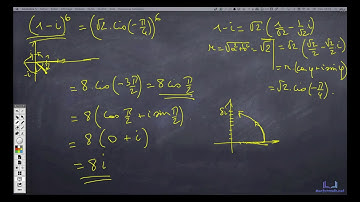 (1-i)^6 = (√2 · cis(-π/4))^6
= 8 · cis(-3π/2) = 8 cis π/2
= 8 (cos π/2 + i sin π/2)
= 8 (0 + i)
= 8i
1-i = √2 (1/√2 - 1/√2 i)
r = √(a²+b²) = √2 = √2 (√2/2 - √2/2 i)
= r (cos φ + i sin φ)
= √2 · cis(-π/4)
8i